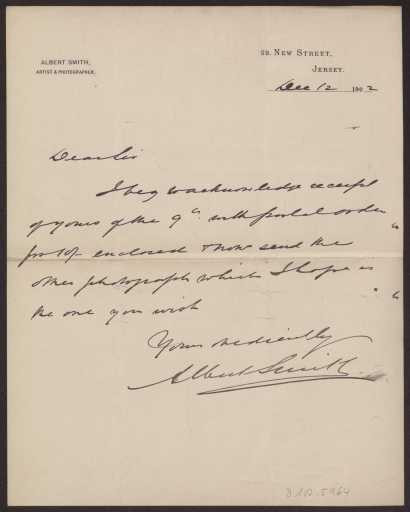 ALBERT SMITH,
ARTIST & PHOTOGRAPHER.
59. NEW STREET,
JERSEY.
Dec 12 1902
Dear Sir
I beg to acknowledge receipt
of yours of the 9th with postal order
for enclosed & now send the
other photograph which I hope is
the one you wish
Yours obediently
Albert Smith.